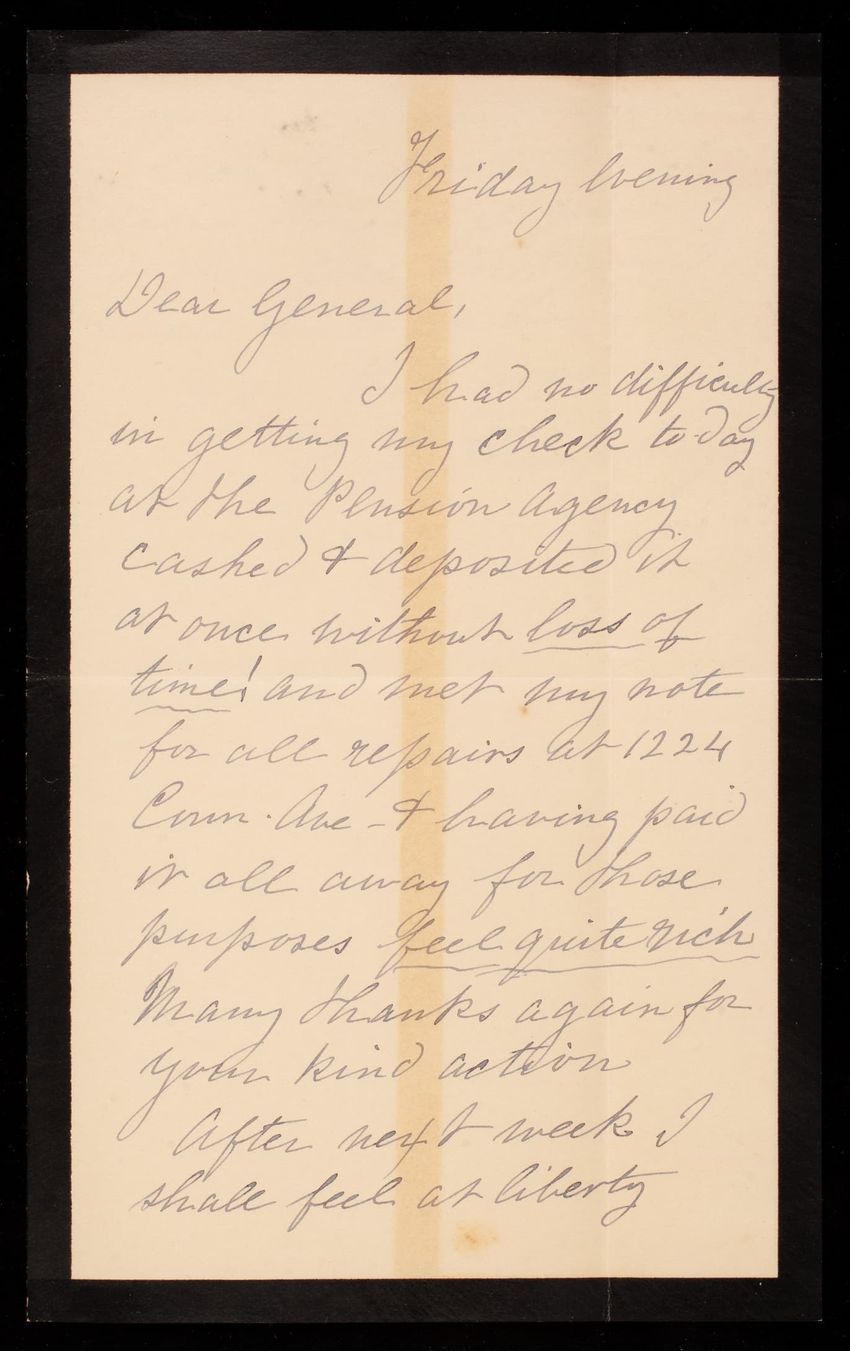 Friday Evening
Dear General,
I had no difficulty
in getting my check to-day
at the Pension Agency
cashed & deposited it
at once without loss of
time! and met my note
for all repairs at 1224
Conn. Ave - & having paid
it all away for those
purposes feel quite rich
Many thanks again for
your kind action
After next week I
shall feel at liberty